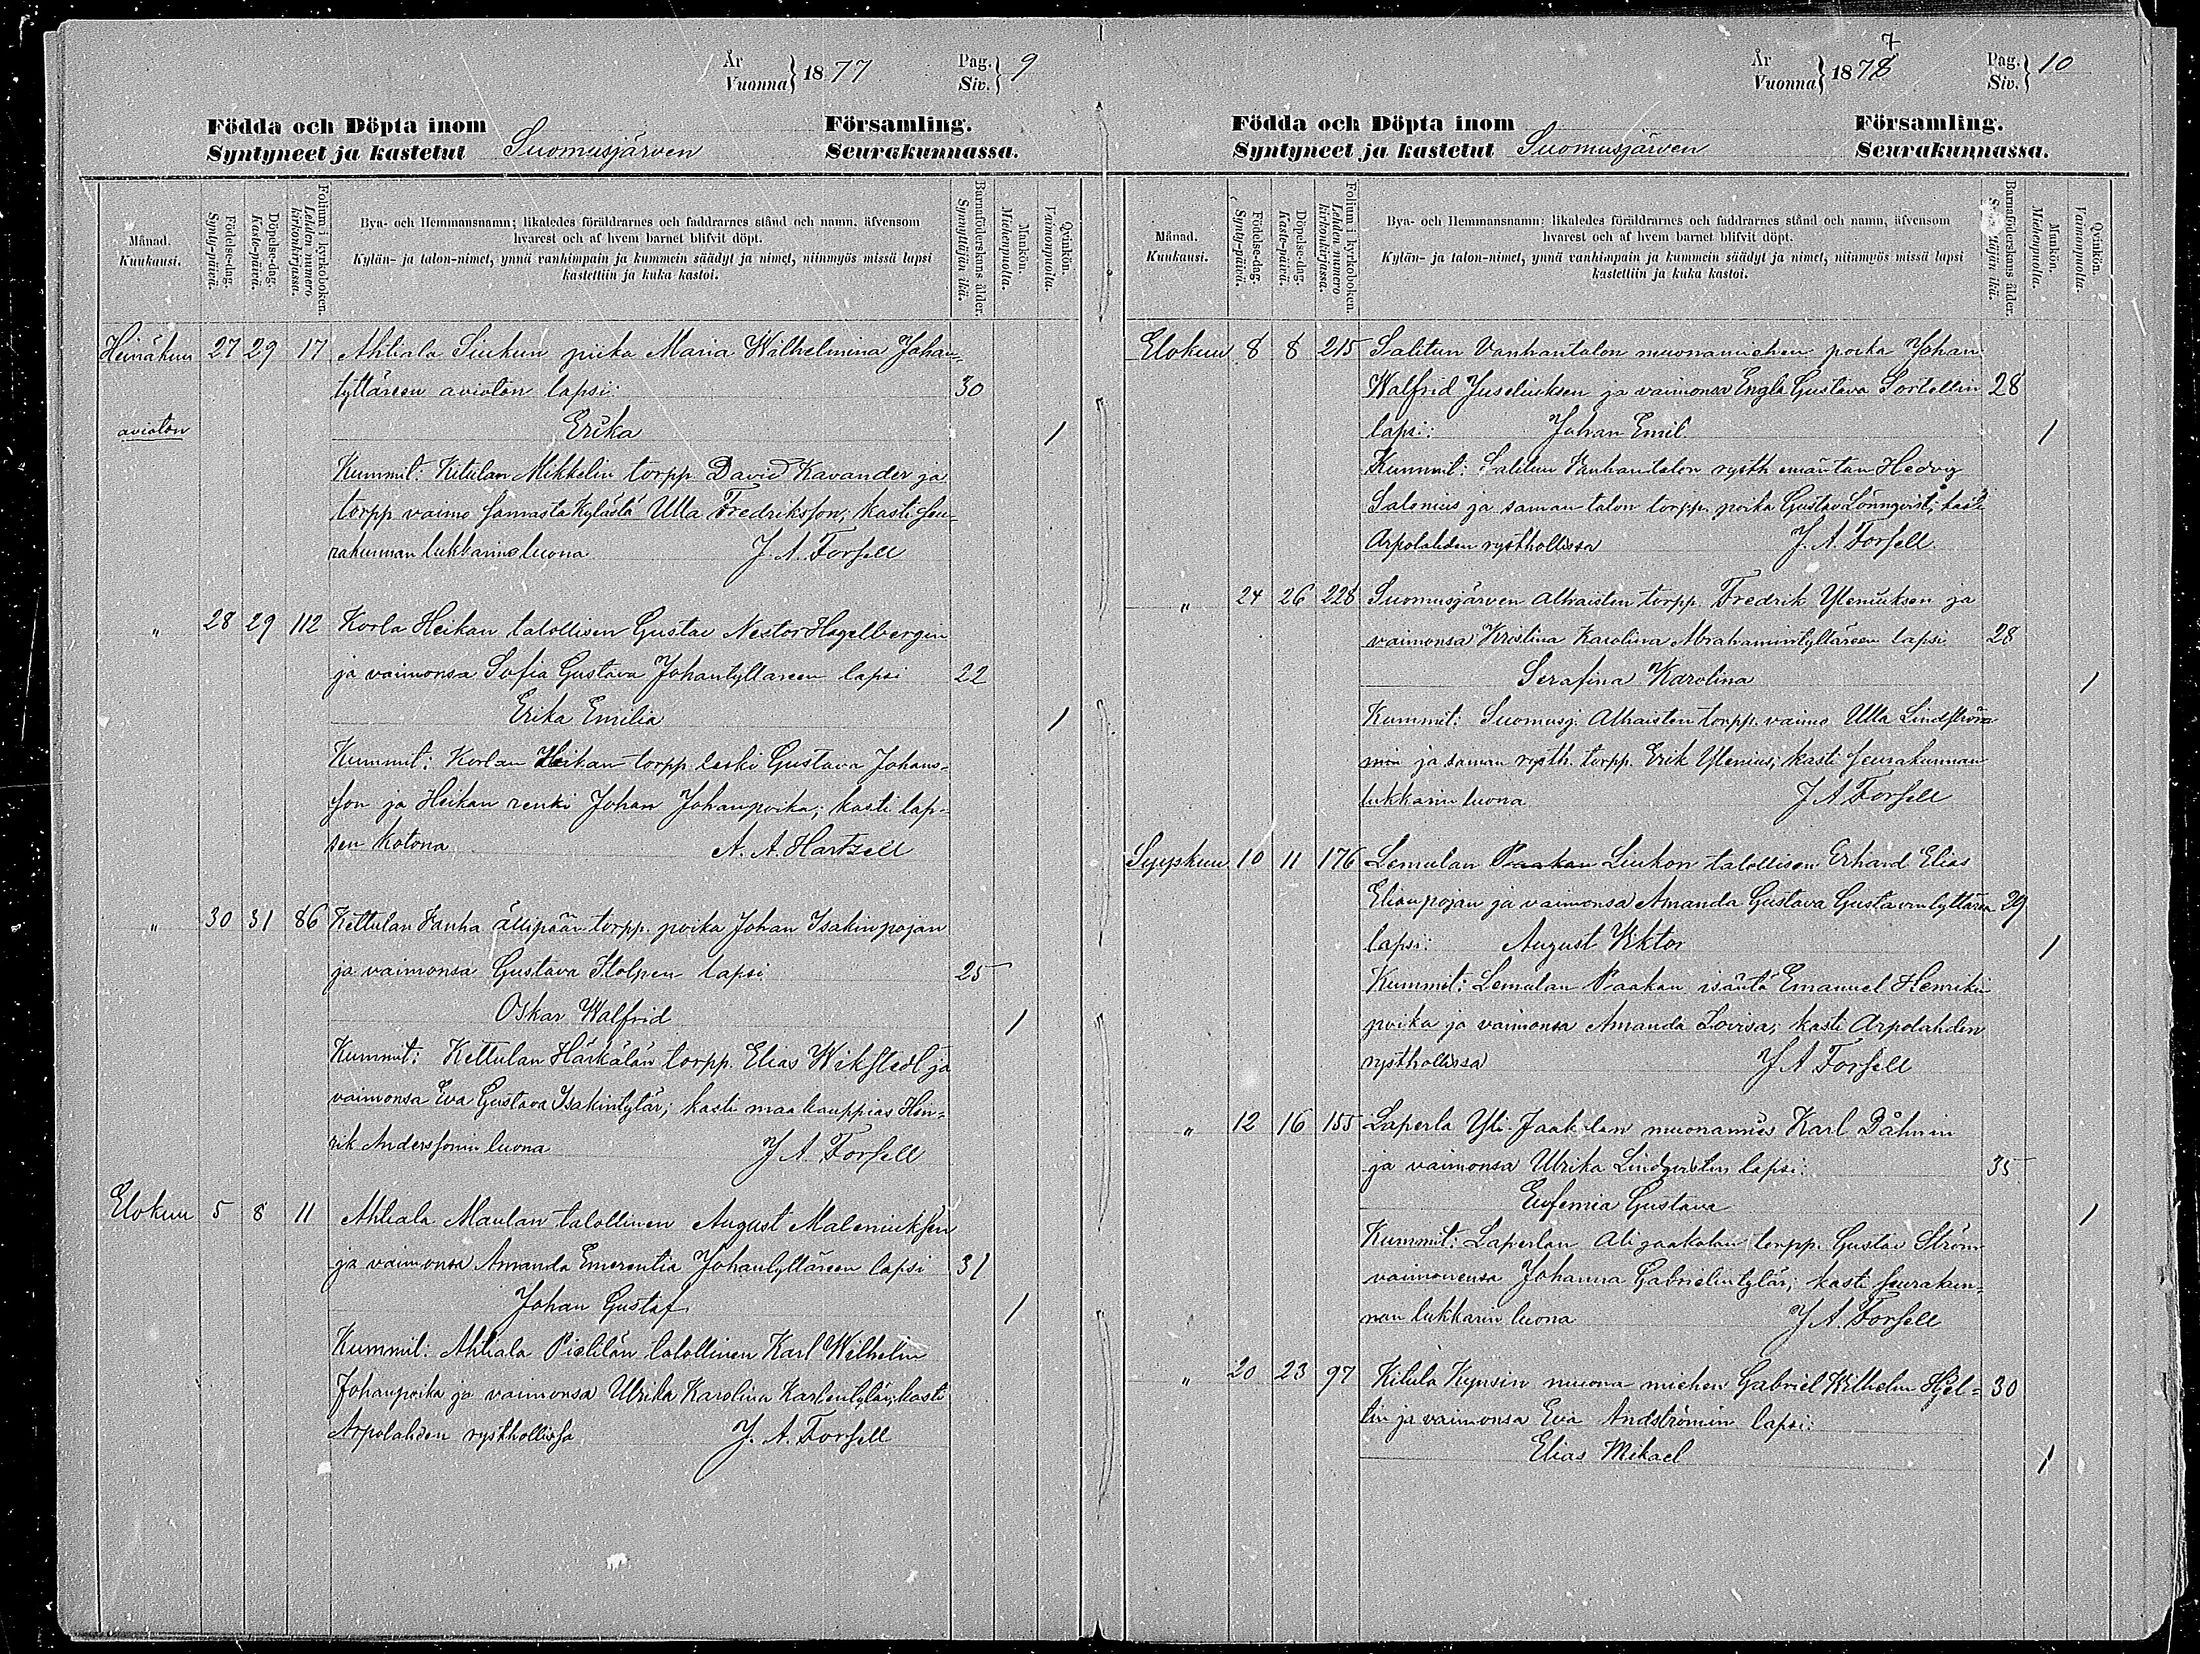 År
Vuonna } 1877
Pag.
Siv. } 9
Födda och Döpta inom
Syntyneet ja kastetut Suomusjärven
Församling.
Seurakunnassa.
Månad.
Kuukausi.
Födelse-dag.
Synty-päivä.
Döpelse-dag.
Kaste-päivä.
Folium i kyrkoboken.
Lehden numero kirkonkirjassa.
Bya- och Hemmansnamn; likaledes föräldrarnes och faddrarnes stånd och namn, äfvensom
hvarest och af hvem barnet blifvit döpt.
Kylän- ja talon-nimet, ynnä vanhimpain ja kummein säädyt ja nimet, niinmyös missä lapsi
kastettiin ja kuka kastoi.
Barnaföderskans ålder.
Synnyttäjän ikä.
Mankön.
Miehenpuolta.
Qvinkön.
Vaimonpuolta.
Heinäkuu 27 29 17 Ahtiala Siukun piika Maria Wilhelmina Johan-
tyttären avioton lapsi: 30
avioton Erika 1
Kummit: Kitulan Mikkelin torpp. David Kavander ja
torpp vaimo samasta kylästä Ulla Fredriksson; kasti seu-
rakunnan lukkarin luona J. A. Forsell
" 28 29 112 Korla Heikan talollisen Gustav Nestor Hagelbergin
ja vaimonsa Sofia Gustava Johantyttareen lapsi 22
Erika Emilia 1
Kummit: Korlan Heikan torpp leski Gustava Johans-
son ja Heikan renki Johan Johanpoika; kasti lap-
sen kotona A. A. Hartzell
" 30 31 86 Kettulan torpp. poika Johan Isakinpojan
ja vaimonsa Gustava Stolpen lapsi 25
Oskar Walfrid 1
Kummit: Kettulan Härkälän torpp. Elias Wikstedt ja
vaimonsa Eva Gustava Isakintytär; kasti maakauppias Hen-
rik Anderssonin luona J A. Forsell
Elokuu 5 8 11 Ahtiala Maulan talollinen August Maleniuksen
ja vaimonsa Amanda Emerentia Johantyttäreen lapsi 31
Johan Gustaf 1
Kummit: Ahtiala Pietilän talollinen Karl Wilhelm
Johanpoika ja vaimonsa Ulrika Karolina Karlentytär; kasti
Arpolahden rysthollissa J. A. Forsell
År
Vuonna } 1878 7
Pag.
Siv. } 10
Födda och Döpta inom
Syntyneet ja kastetut Suomusjärven
Församling.
Seurakunnassa.
Månad.
Kuukausi.
Födelse-dag.
Synty-päivä.
Döpelse-dag.
Kaste-päivä.
Folium i kyrkoboken.
Lehden numero kirkonkirjassa.
Bya- och Hemmansnamn; likaledes föräldrarnes och faddrarnes stånd och namn, äfvensom
hvarest och af hvem barnet blifvit döpt.
Kylän- ja talon-nimet, ynnä vanhimpain ja kummein säädyt ja nimet, niinmyös missä lapsi
kastettiin ja kuka kastoi.
Barnaföderskans ålder.
Mankön.
Miehenpuolta.
Qvinkön.
Vaimonpuolta.
Elokuu 8 8 215 Salitun Vanhantalon muonamiehen poika Johan
Walfrid Juseliuksen ja vaimonsa Engla Gustava Sortellin 28
lapsi: Johan Emil 1
Kummit: Salitun Vanhantalon rysth emäntän Hedvig
Salonius ja saman talon torpp. poika Gustav Lönnqvist; kasti
Arpolahden rysthollissa J. A. Forsell
" 24 26 228 Suomusjärven Alhaisten torpp. Fredrik Yleniuksen ja
vaimonsa Kristina Karolina Abrahamintyttäreen lapsi 28
Serafina Karolina 1
Kummit: Suomusj. Alhaisten torpp. vaimo Ulla Lindströ
min ja saman rysth. torpp. Erik Ylenius; kasti seurakunnan
lukkarin luona J A Forsell
Syyskuu 10 11 176 Lemulan Paakan Liukon talollisen Erhard Elias
Elianpojan ja vaimonsa Amanda Gustava Gustavintyttären 29
lapsi: August Viktor 1
Kummit: Lemulan Paakan isäntä Emanuel Henrikin
poika ja vaimonsa Amanda Lovisa; kasti Arpolahden
rysthollissa J A Forsell
" 12 16 155 Laperla Yli-Jaakolan muonamies Karl Påhnin
ja vaimonsa Ulrika Lindqvistin lapsi: 35
Eufemia Gustava 1
Kummit: Laperlan Alijaakolan torpp. Gustav Ström
vaimonensa Johanna Gabrielintytär; kasti seurakun-
nan lukkarin luona J A. Forsell
" 20 23 97 Kitula Kynsin muona miehen Gabriel Wilhelm Hjel- 30
tin ja vaimonsa Eva Andströmin lapsi:
Elias Mikael 1